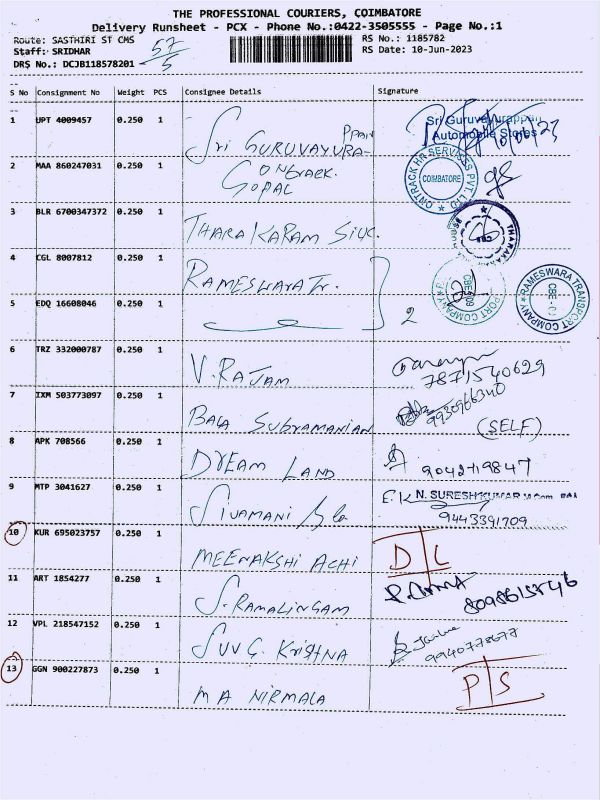 THE PROFESSIONAL COURIERS, COIMBATORE
Delivery Runsheet - PCX - Phone No.:0422-3505555 - Page No.:1
Route: SASTHIRI ST CMS 57/5 RS No.: 1185782
Staff: SRIDHAR RS Date: 10-Jun-2023
DRS No.: DCJB118578201
S No Consignment No Weight PCS Consignee Details Signature
1 UPT 4009457 0.250 1 Sri GURUVAYURAPPAN Sri Guruvayurappan Automobile Stores
2 MAA 860247031 0.250 1 GOPAL ONTRACK HR SERVICES PVT. LTD COIMBATORE
3 BLR 6700347372 0.250 1 THARAKARAM SILK.
4 CGL 8007812 0.250 1 RAMESWARA Tr.
5 EDQ 16608046 0.250 1 2 RAMESWARA TRANSPORT COMPANY CBE
6 TRZ 332000787 0.250 1 V. RAJAM 7871540629
7 IXM 503773097 0.250 1 BALA SUBRAMANIAN 9930966340 (SELF)
8 APK 708566 0.250 1 DREAM LAND
9 MTP 3041627 0.250 1 SIVAMANI N. SURESHKUMAR M.Com. 9443391709
10 KUR 695023757 0.250 1 MEENAKSHI ACHI D/L
11 ART 1854277 0.250 1 S. RAMALINGAM
12 VPL 218547152 0.250 1 SUV G. KRISHNA 9940778677
13 GGN 900227873 0.250 1 M A NIRMALA P/S